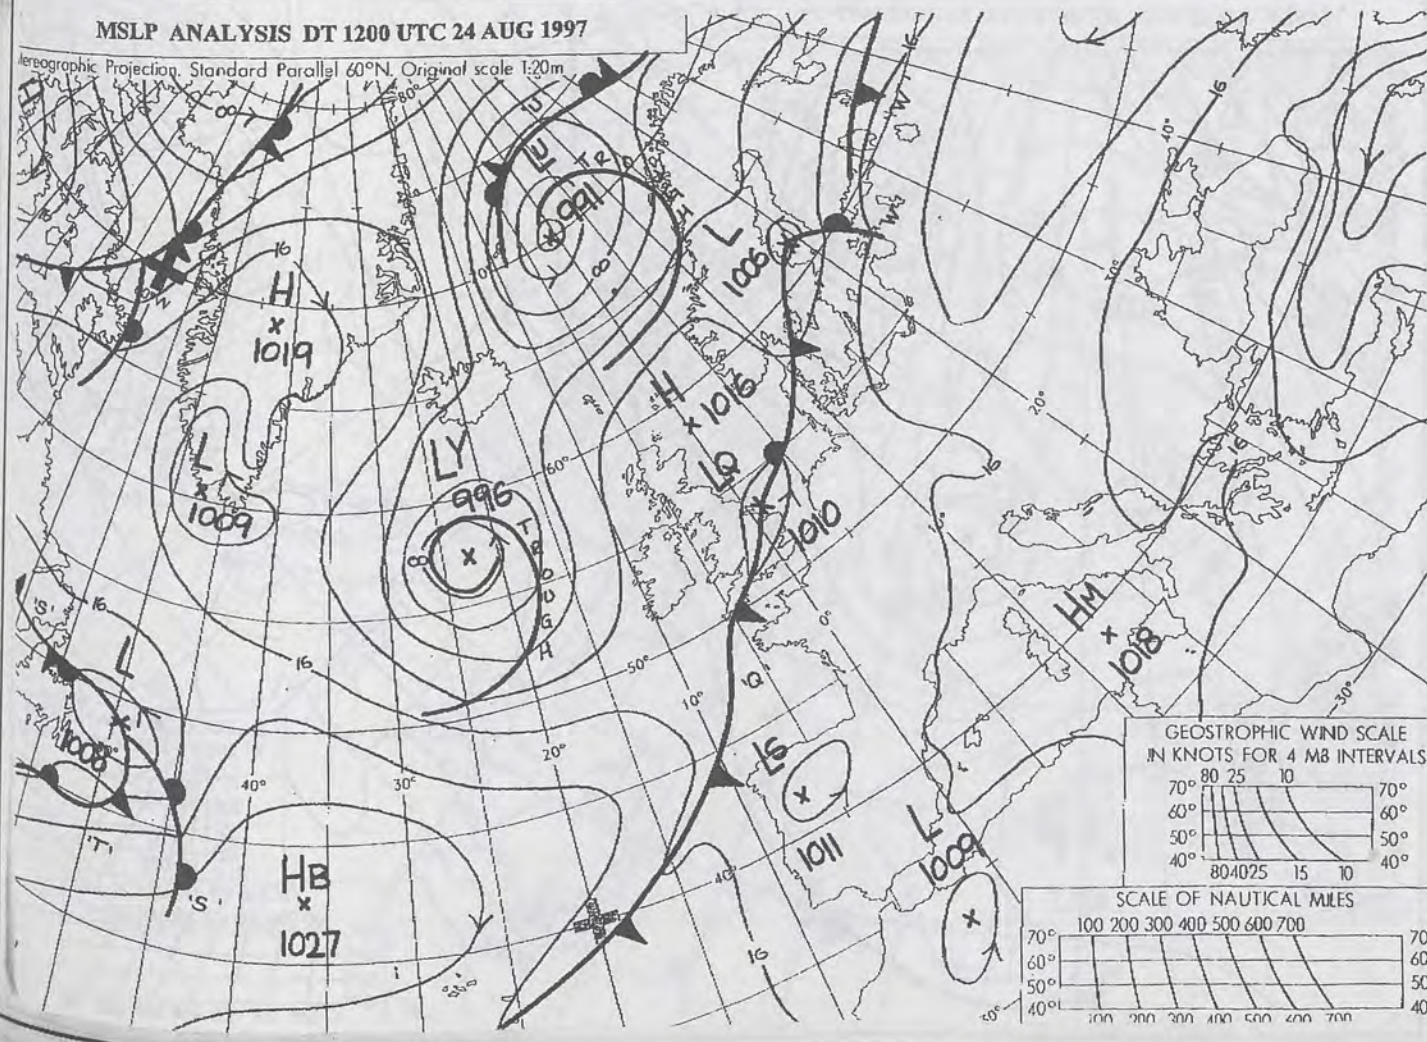 MSLP ANALYSIS DT 1200 UTC 24 AUG 1997
Stereographic Projection. Standard Parallel 60°N. Original scale 1:20m
80°
H
∞
'U'
LU
991
T R O
∞
'W'
16
40°
L
1006
16
H
1019
H
1016
LQ
1010
LY
996
8
T R O U G H
60°
20°
16
16
L
1009
'S'
16
L
1008
16
50°
10°
20°
0°
'Q'
HM
1018
30°
LG
1011
L
1009
40°
30°
40°
'T'
'S'
HB
1027
16
GEOSTROPHIC WIND SCALE
IN KNOTS FOR 4 MB INTERVALS
80 25 10
70° 70°
60° 60°
50° 50°
40° 40°
80 40 25 15 10
SCALE OF NAUTICAL MILES
100 200 300 400 500 600 700
70° 70
60° 60
50° 50
40° 40
100 200 300 400 500 600 700